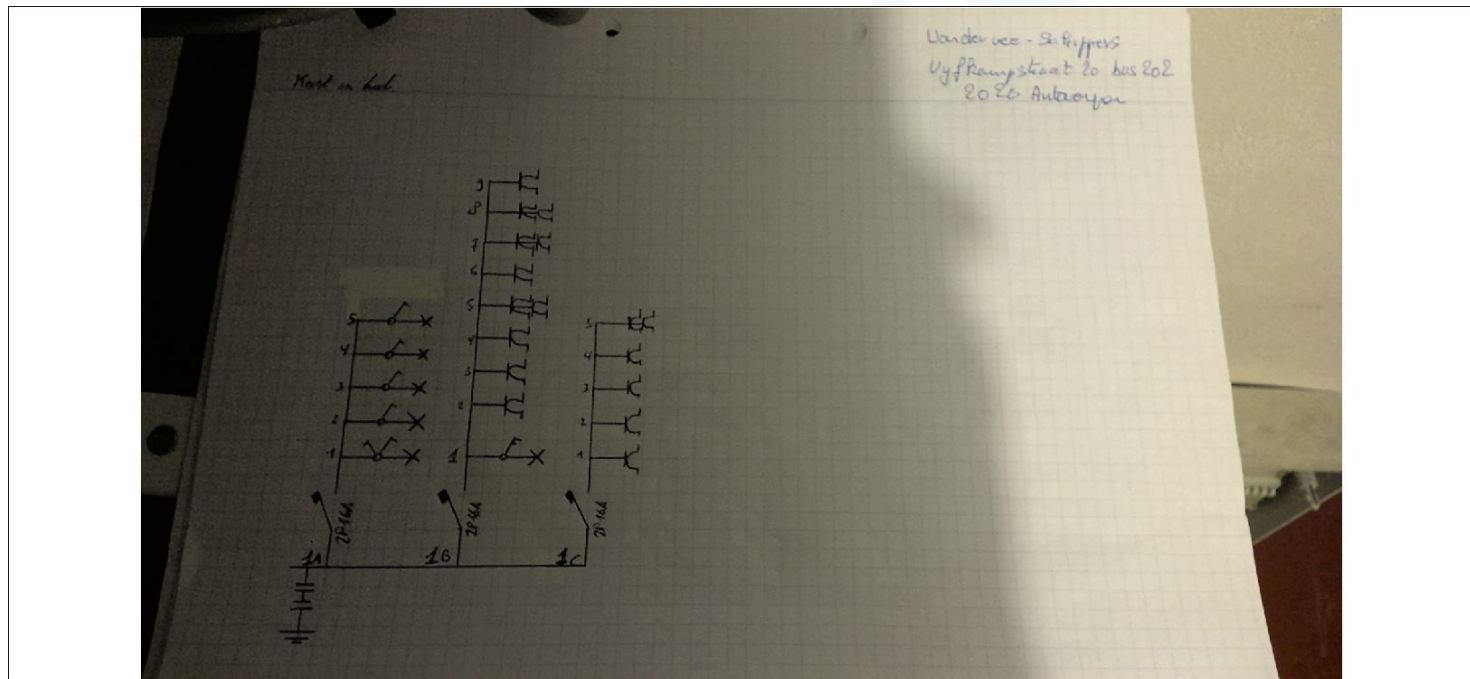 Kast in hal.
Vandervee - Schippers
Vyfkampstraat 20 bus 202
2020 Antwerpen
9
8
7
6
5
4
3
2
1
5
4
3
2
1
5
4
3
2
1
2P16A
2P16A
2P16A
1A
1B
1C